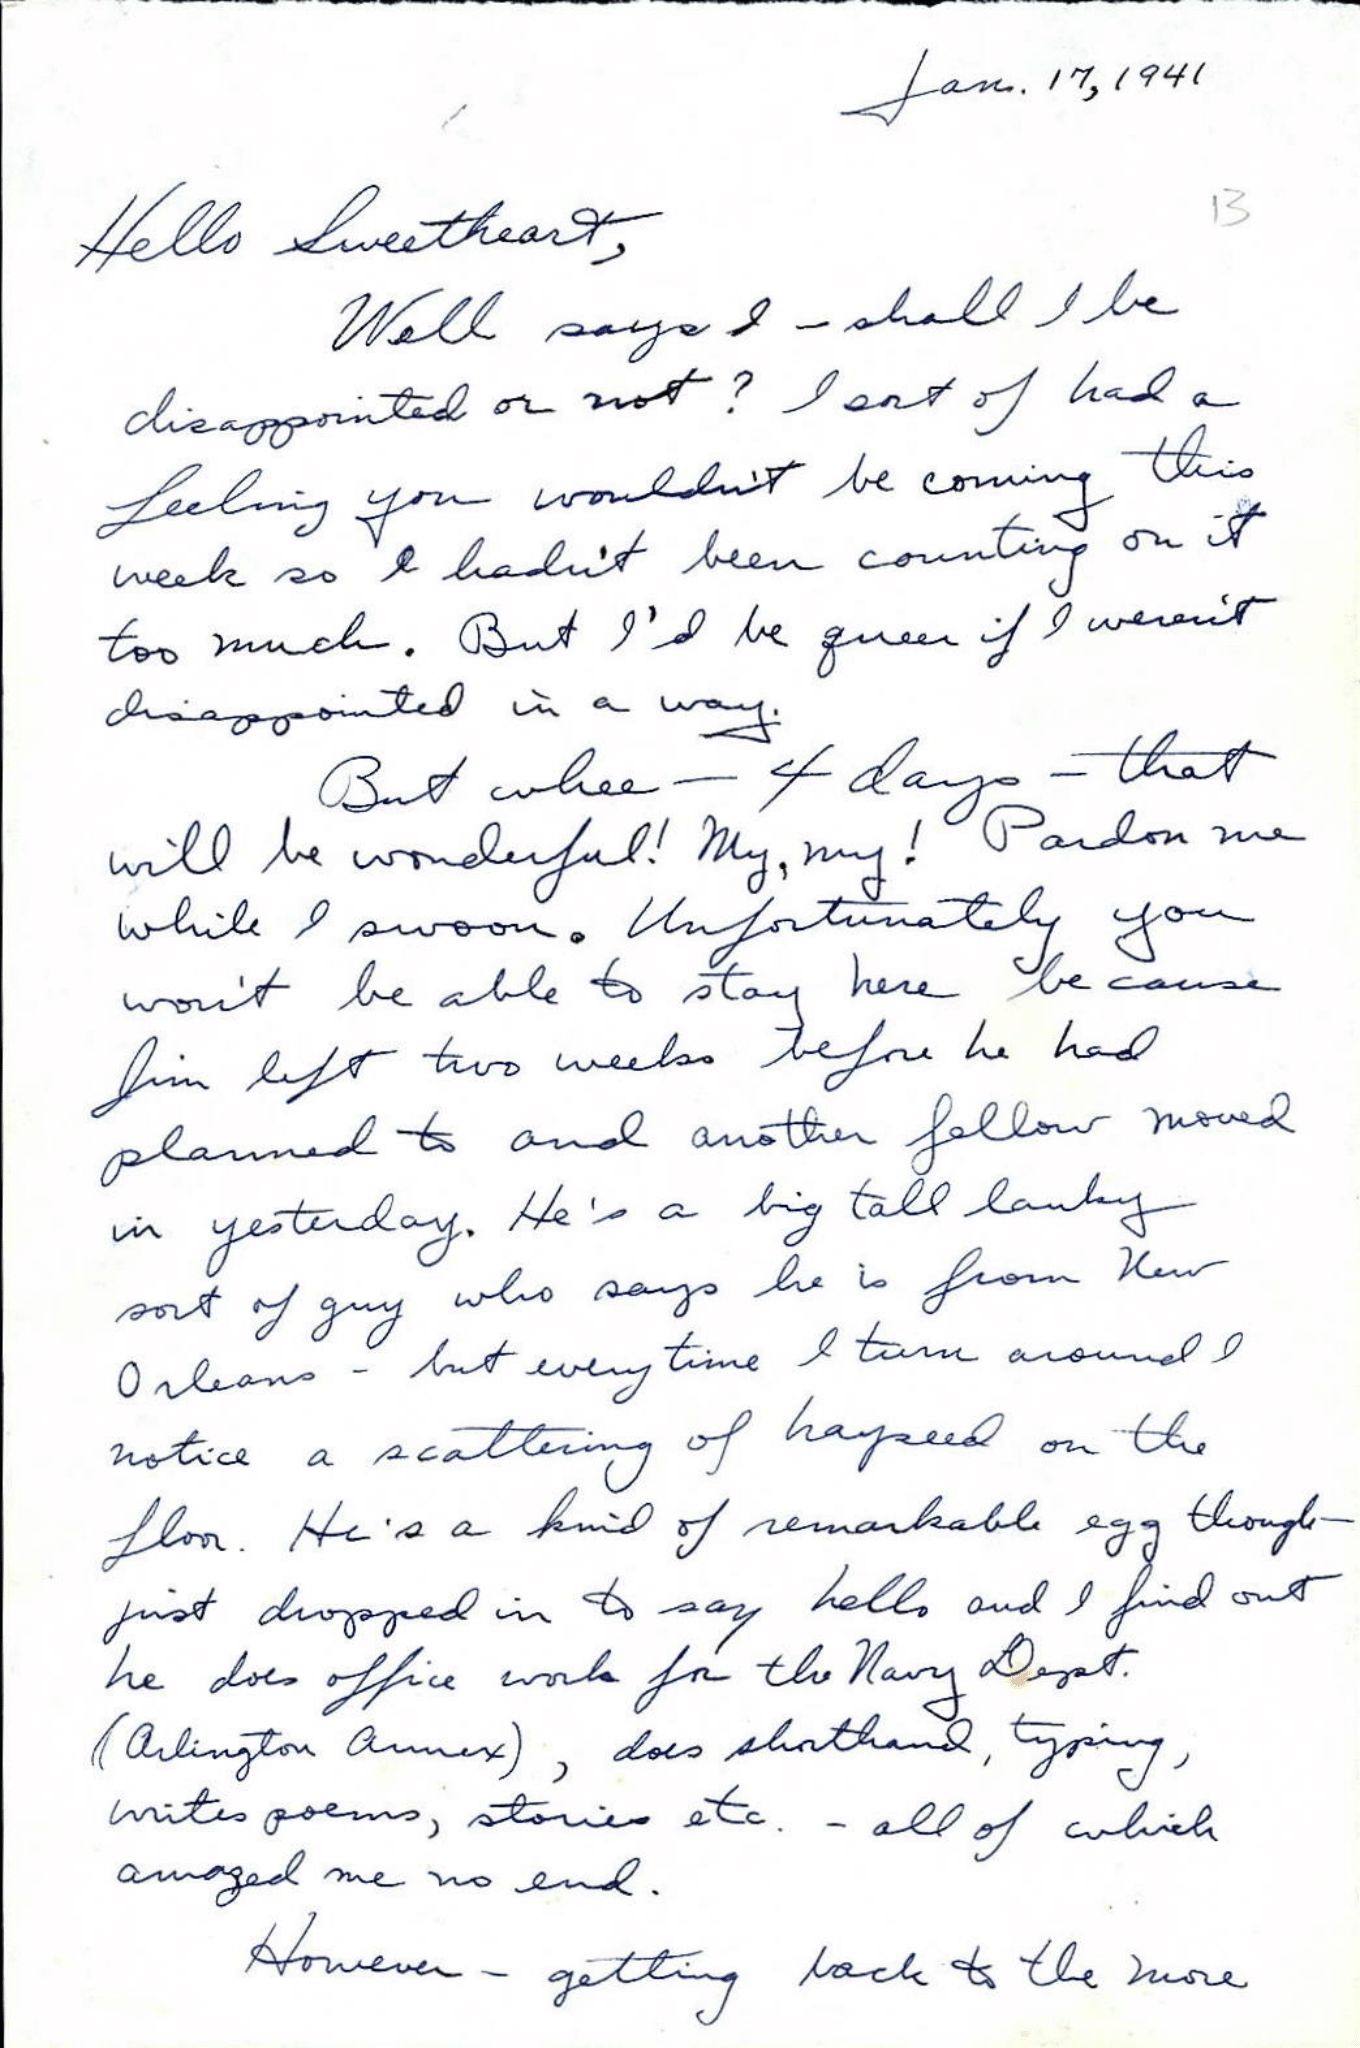 Jan. 17, 1941
13
Hello Sweetheart,
Well says I - shall I be
disappointed or not? I sort of had a
feeling you wouldn't be coming this
week so I hadn't been counting on it
too much. But I'd be queer if I weren't
disappointed in a way.
But whee - 4 days - that
will be wonderful! My, my! Pardon me
while I swoon. Unfortunately you
won't be able to stay here because
Jim left two weeks before he had
planned to and another fellow moved
in yesterday. He's a big tall lanky
sort of guy who says he is from New
Orleans - but everytime I turn around I
notice a scattering of hayseed on the
floor. He's a kind of remarkable egg though-
just dropped in to say hello and I find out
he does office work for the Navy Dept.
(Arlington Annex), does shorthand, typing,
writes poems, stories etc. - all of which
amazed me no end.
However - getting back to the more